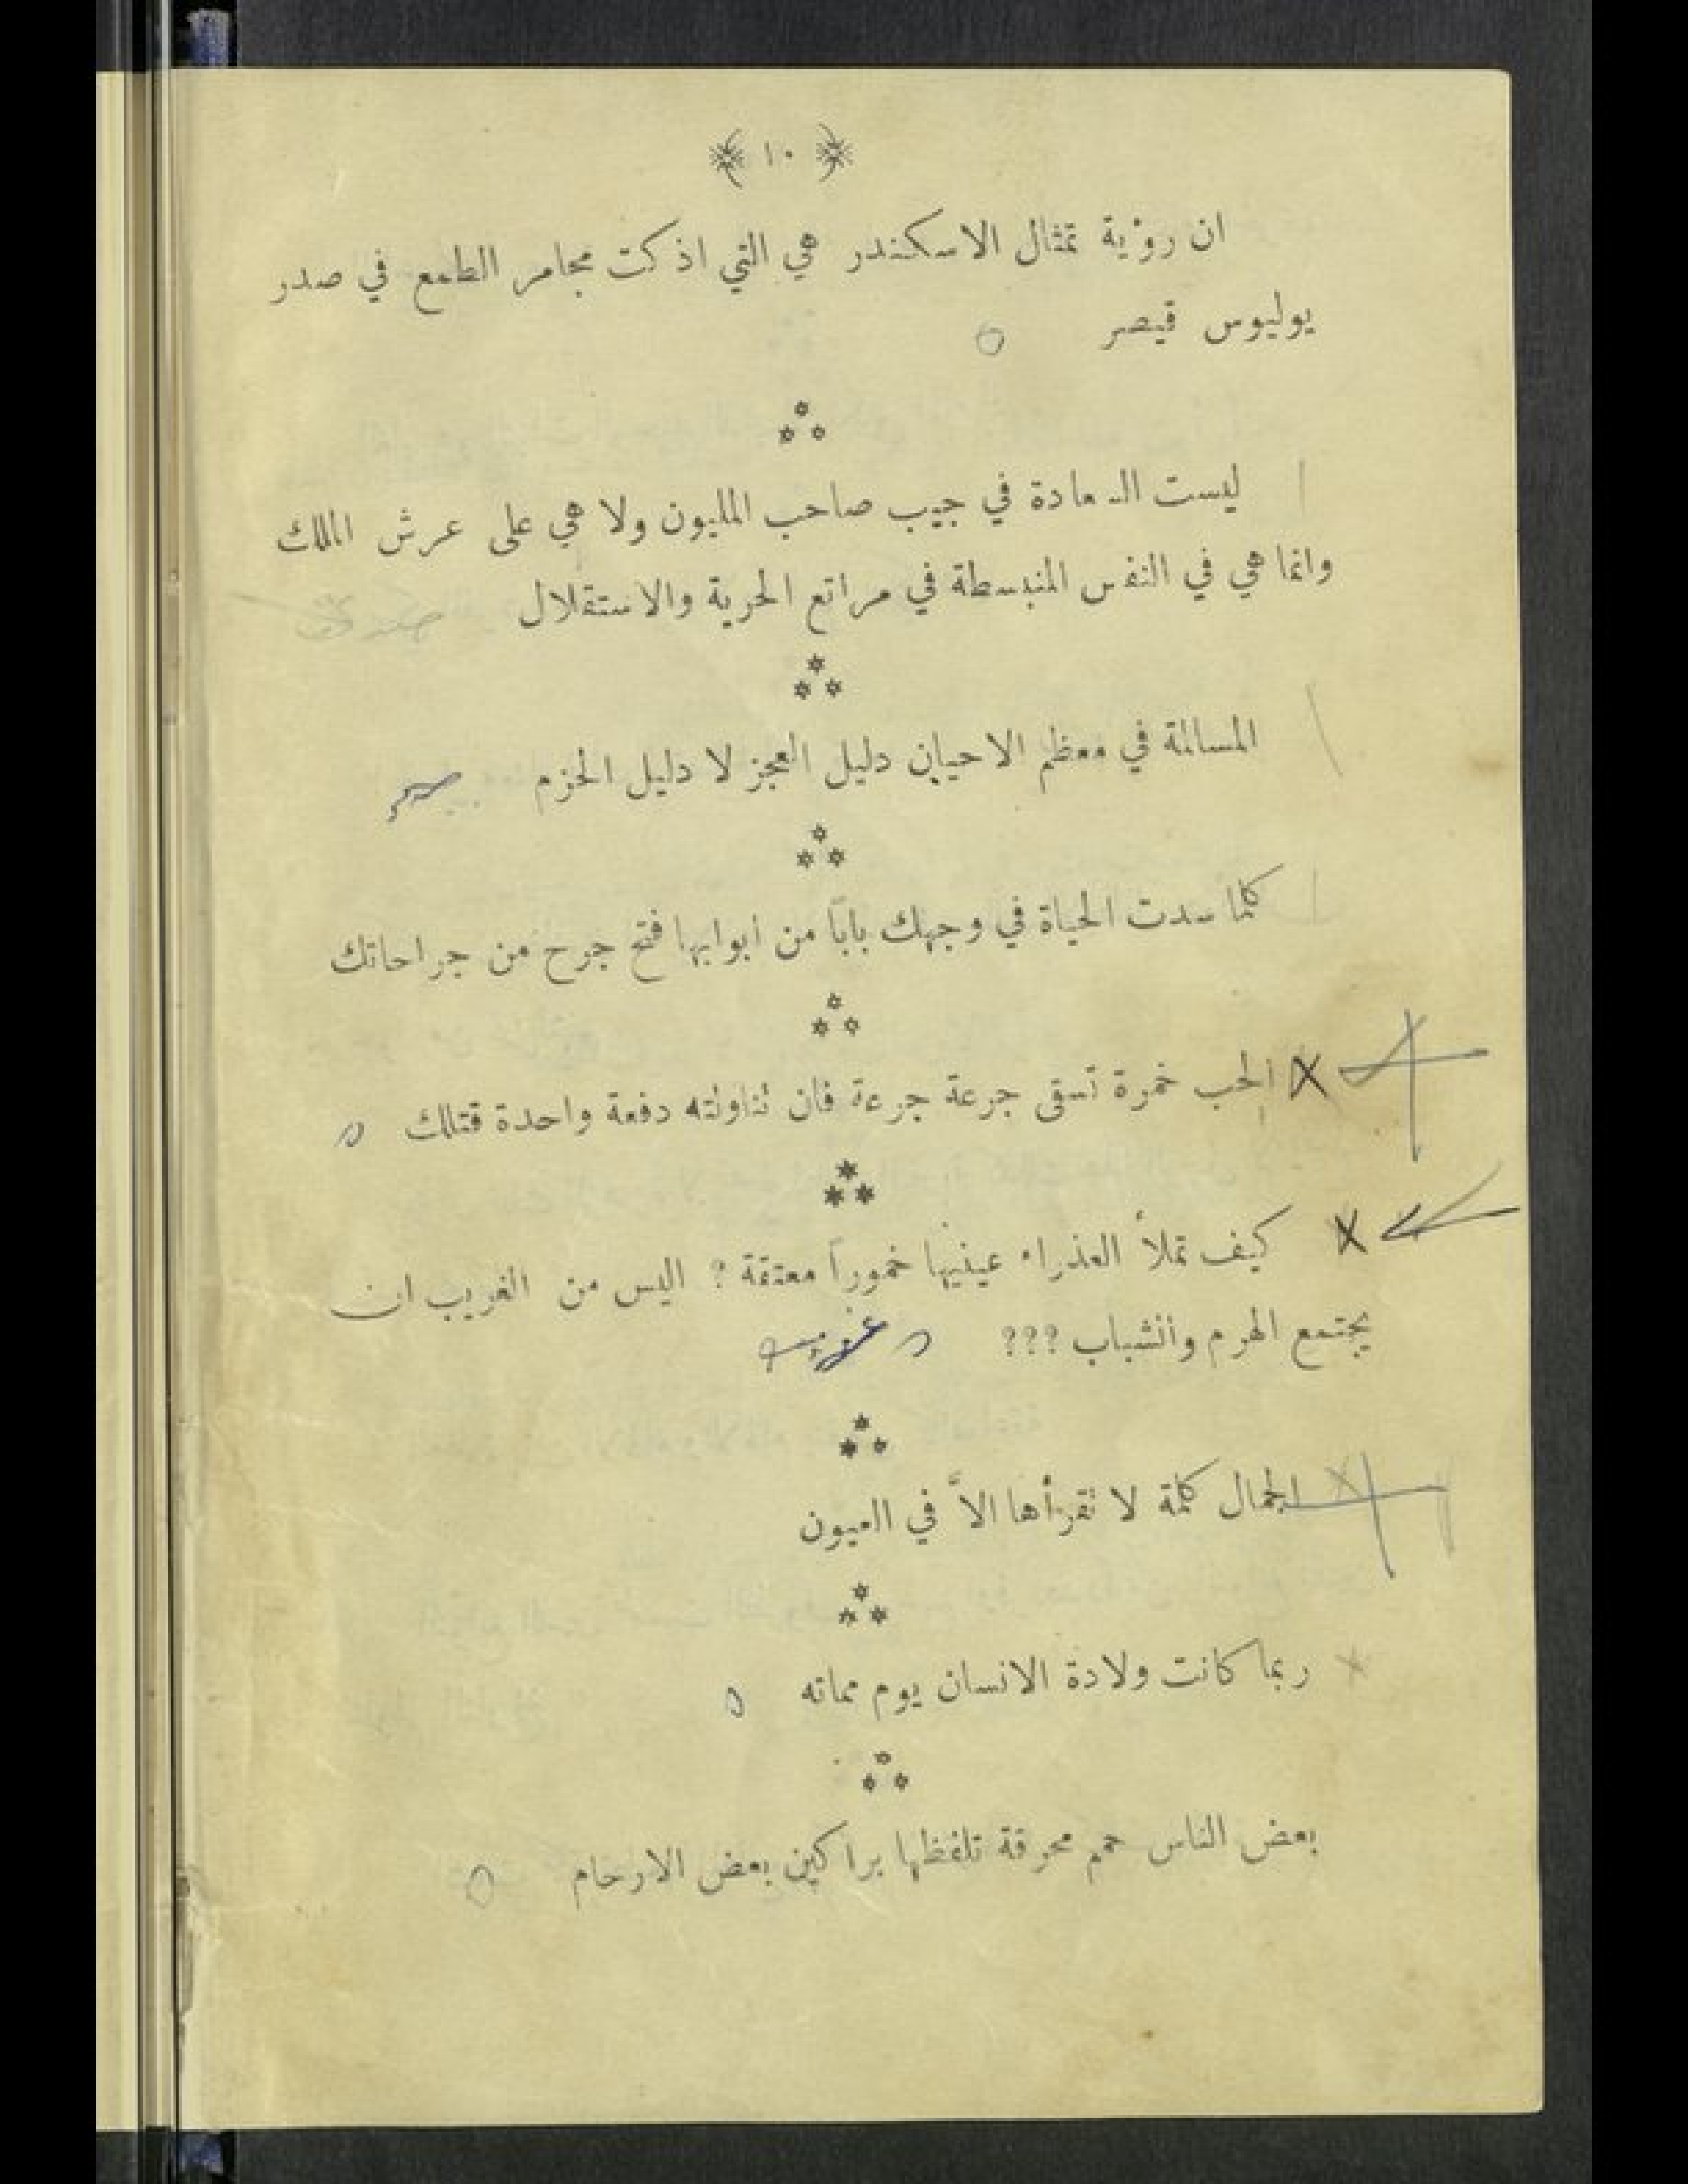 ١٠
ان رؤية تمثال الاسكندر هي التي اذكت مجامر الطمع في صدر
يوليوس قيصر
ليست السعادة في جيب صاحب المليون ولا هي على عرش الملك
وانما هي في النفس المنبسطة في مراتع الحرية والاستقلال
المسالمة في معظم الاحيان دليل العجز لا دليل الحزم
كلما سدت الحياة في وجهك باباً من ابوابها فتح جرح من جراحاتك
الحب خمرة تسقى جرعة جرعة فان تناولته دفعة واحدة قتلك
كيف تملأ العذراء عينيها خموراً معتقة ? اليس من الغريب ان
يجتمع الهرم والشباب ???
الجمال كلمة لا تقرأها الاَّ في العيون
ربما كانت ولادة الانسان يوم مماته
بعض الناس حمم محرقة تلفظها براكين بعض الارحام